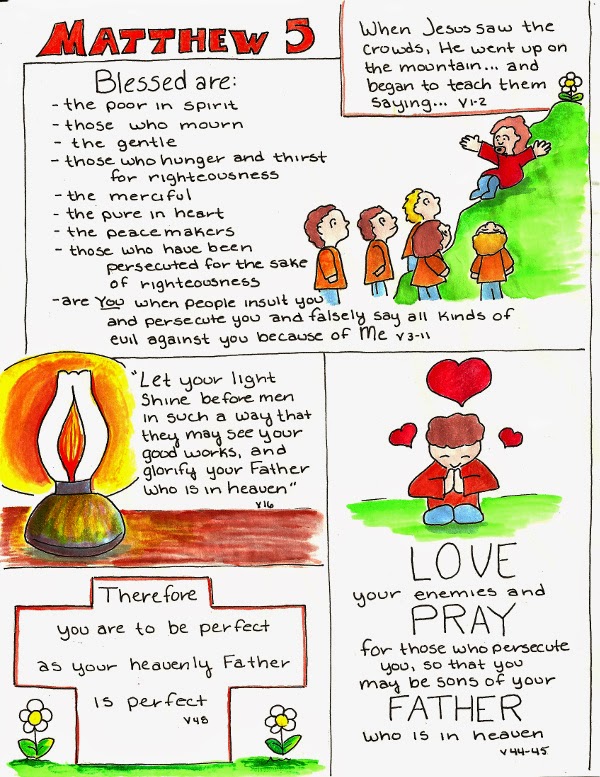 MATTHEW 5
When Jesus saw the
crowds, He went up on
the mountain... and
began to teach them
saying... v1-2
Blessed are:
- the poor in spirit
- those who mourn
- the gentle
- those who hunger and thirst
for righteousness
- the merciful
- the pure in heart
- the peacemakers
- those who have been
persecuted for the sake
of righteousness
- are You when people insult you
and persecute you and falsely say all kinds of
evil against you because of Me v3-11
"Let your light
Shine before men
in such a way that
they may see your
good works, and
glorify your Father
who is in heaven"
v16
LOVE
your enemies and
PRAY
for those who persecute
you, so that you
may be sons of your
FATHER
who is in heaven
v44-45
Therefore
you are to be perfect
as your heavenly Father
is perfect
v48